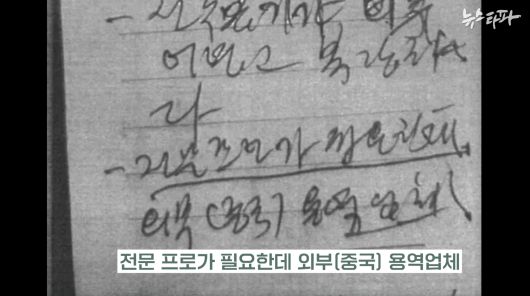 뉴스타파
어렵고 복잡하
다
- 전문 프로가 필요한데,
외부(중국) 용역업체
전문 프로가 필요한데 외부(중국) 용역업체